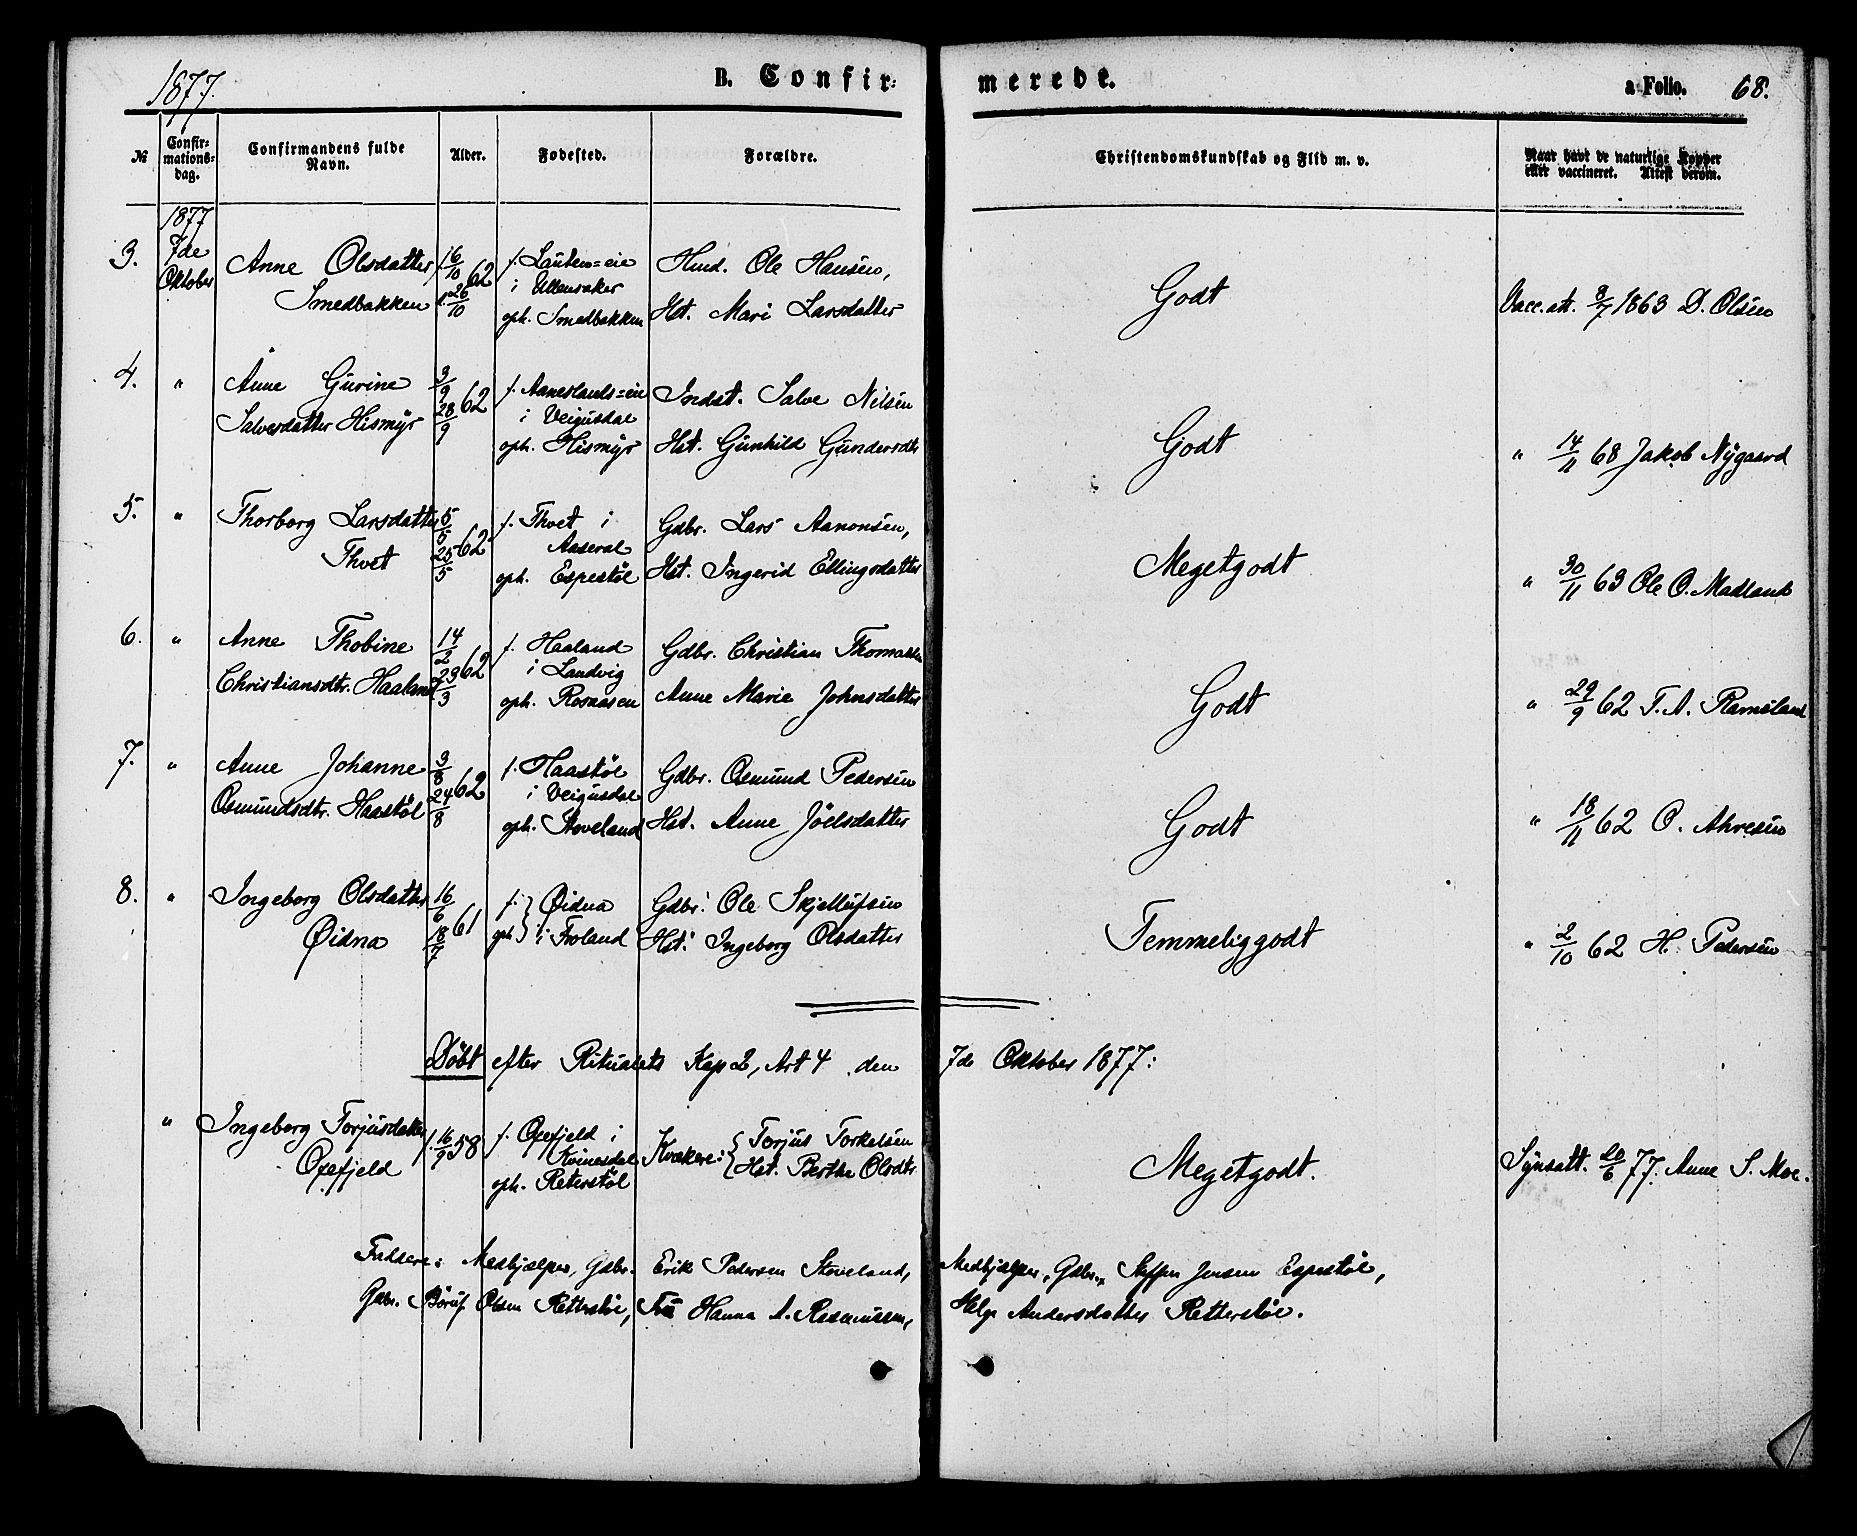 1877. B. Confirmerede. a Folio. 68.
№ Confirmations-dag. Confirmandens fulde Navn. Alder. Fødested. Forældre. Christendomskundskab og Flid m. v. Naar havt de naturlige Kopper eller vaccineret. Attest derom.
1877
3. 7de Oktober Anne Olsdatter Smedbakken 16/10 26/10 62 f. Lauten=eie i Ullensaker oph. Smedbakken Husd. Ole Hansen, Hst. Mari Larsdatter Godt Vacc. att. 8/7 1863 D. Olsen
4. " Anne Gurine Salvesdatter Hismyr 3/9 28/9 62 f. Aaneslands=eie i Veigusdal oph. Hismyr Indst. Salve Nilsen Hst. Gunhild Gundersdtr Godt " 14/11 68 Jakob Nygaard
5. " Thorborg Larsdatter Thvet 5/5 25/5 62 f. Thvet i Aaseral oph. Espestøl Gdbr. Lars Aanonsen, Hst. Ingerid Ellingsdatter Megetgodt " 30/11 63 Ole O. Madland
6. " Anne Thobine Christiansdtr. Haaland 14/2 23/3 62 f. Haaland i Landvig oph. Rosnæsen Gdbr. Christian Thomassen Anne Marie Johnsdatter Godt " 29/9 62 T. A. Ramsland
7. " Anne Johanne Osmundsdtr. Haastøl 3/8 24/8 62 f. Haastøl i Veigusdal oph. Stoveland Gdbr. Osmund Pedersen Hst. Anne Jöelsdatter Godt " 18/11 62 O. Ahresen
8. " Ingeborg Olsdatter Øidna 16/6 18/7 61 f. oph. } Øidna i Froland Gdbr. Ole Skjellufsen Hst. Ingeborg Olsdatter Temmeliggodt " 2/10 62 H. Pedersen
Døbt efter Ritualets Kap 2, Art 4 den 7de Oktober 1877:
" Ingeborg Torjusdatter Oxefjeld f. 16/9 58 f. Oxefjeld i Kvinesdal oph. Reterstøl Kvækere: { Torjus Torkelsen Hst. Berthe Olsdtr Megetgodt. Synsatt. 20/6 77. Anne S. Moe.
Faddere: Medhjælper, Gdbr. Erik Pedersen Stoveland, Medhjælper, Gdbr. Steffen Jensen Espestøl,
Gdbr. Börüf Olsen Retterstøl, Fru Hanna A. Rasmussen, Helge Andersdatter Retterstøl.